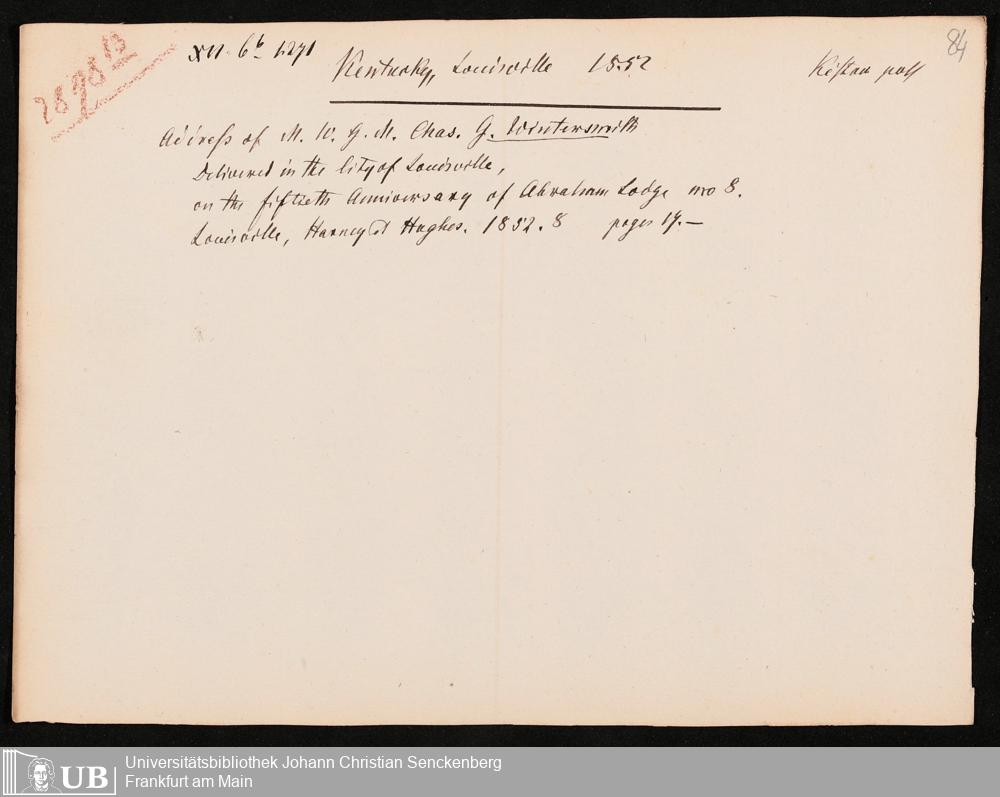 84
XII. 6b 1271
Kentucky, Louisville 1852
Addreſs of M. W. G. M. Chas. G. Wintersmith
Delivered in the City of Louisville,
on the fiftieth Anniversary of Abraham Lodge no 8.
Louisville, Harney & Hughes. 1852. 8 pages 19.—
UB
Universitätsbibliothek Johann Christian Senckenberg
Frankfurt am Main